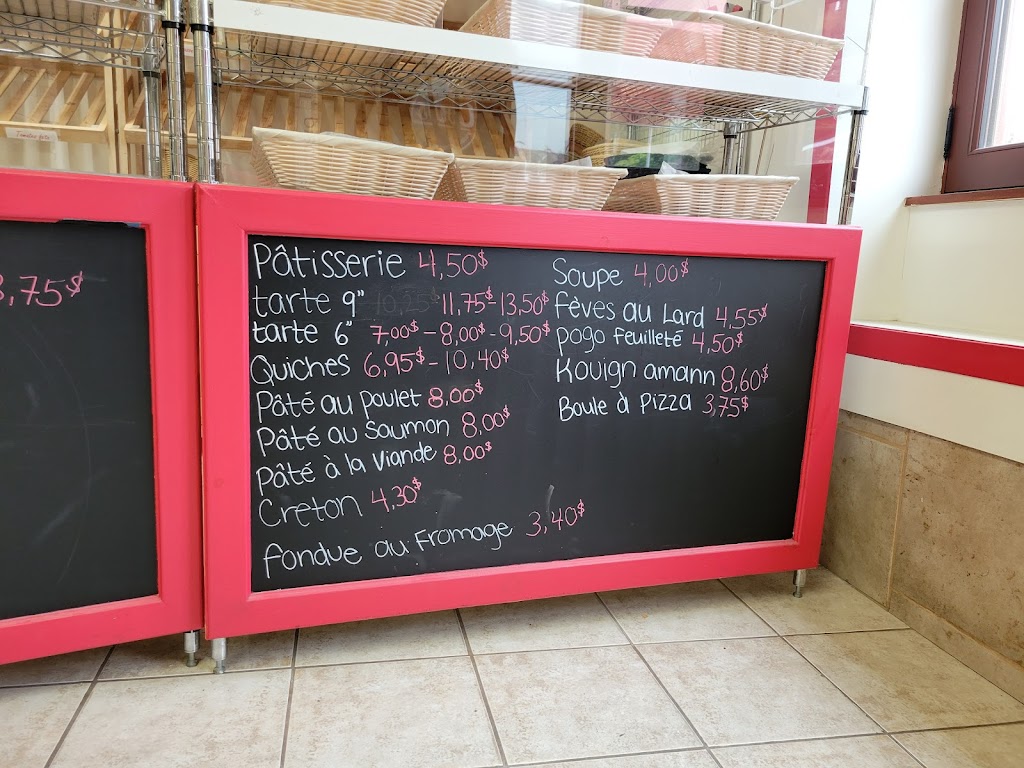 3,75$
Pâtisserie 4,50$
tarte 9" 10,25 11,75$-13,50$
tarte 6" 7,00$-8,00$-9,50$
Quiches 6,95$-10,40$
Pâté au poulet 8,00$
Pâté au Saumon 8,00$
Pâté à la Viande 8,00$
Creton 4,30$
fondue au Fromage 3,40$
Soupe 4,00$
fèves au Lard 4,55$
pogo feuilleté 4,50$
Kouign amann 8,60$
Boule à Pizza 3,75$